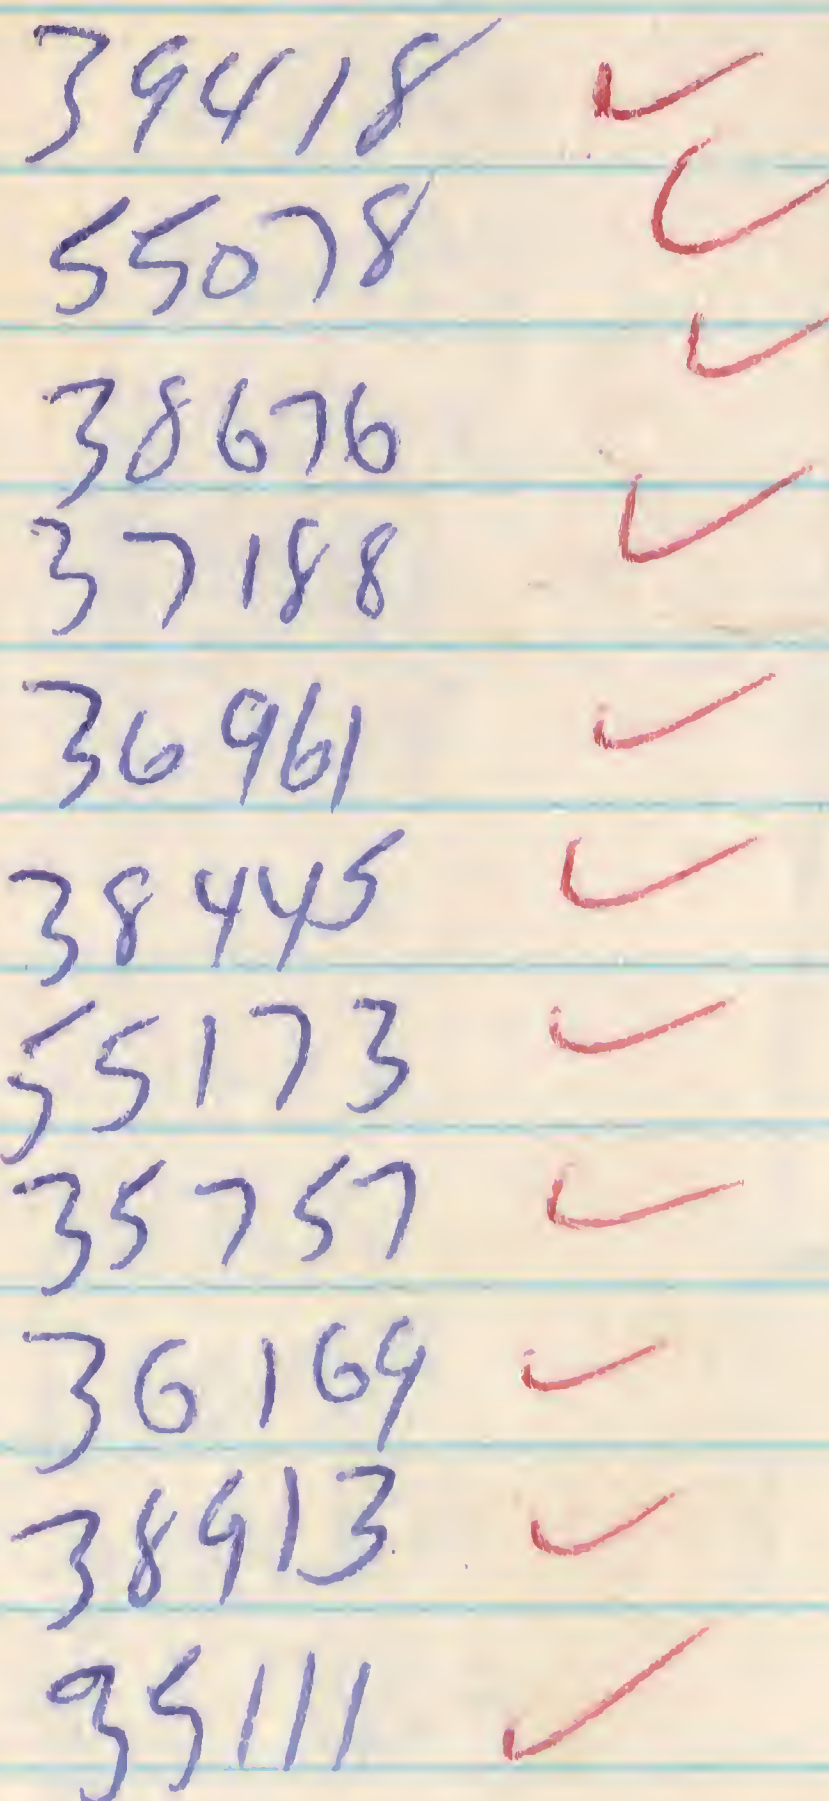 39418
55078
38676
37188
36961
38445
55173
35757
36169
38913
35111